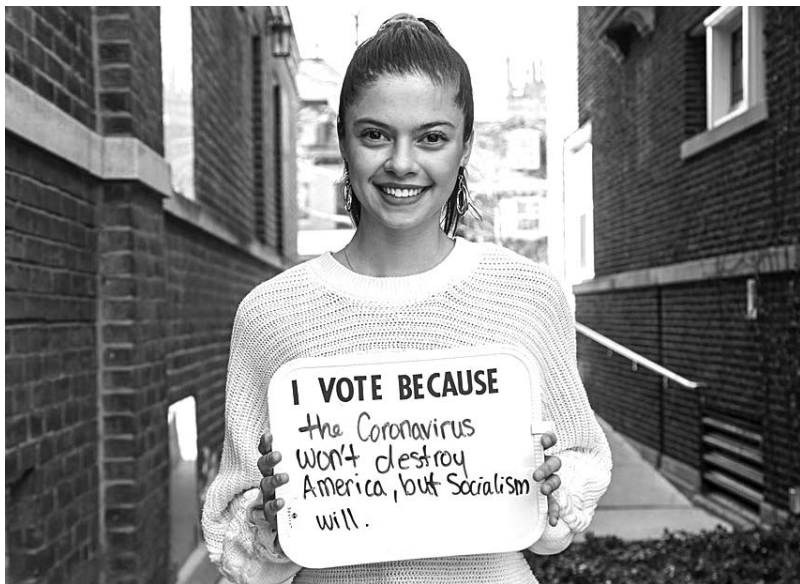 I VOTE BECAUSE
the Coronavirus
won't destroy
America, but Socialism
will.